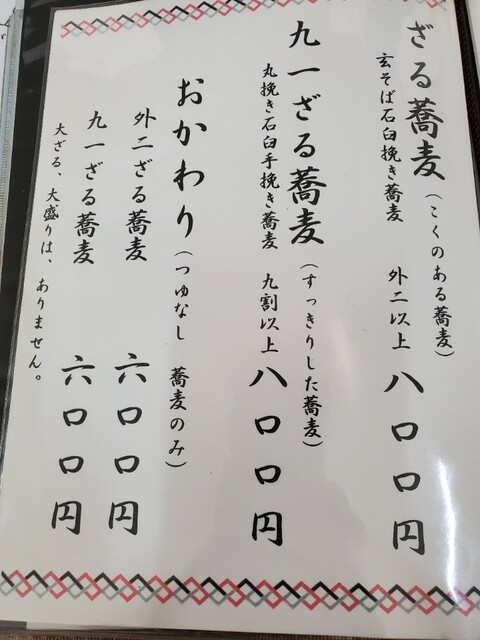 ざる蕎麦(こくのある蕎麦)
玄そば石臼挽き蕎麦 外二以上 八〇〇円
九一ざる蕎麦(すっきりした蕎麦)
丸挽き石臼手挽き蕎麦 九割以上 八〇〇円
おかわり(つゆなし 蕎麦のみ)
外二ざる蕎麦 六〇〇円
九一ざる蕎麦 六〇〇円
大ざる、大盛りは、ありません。